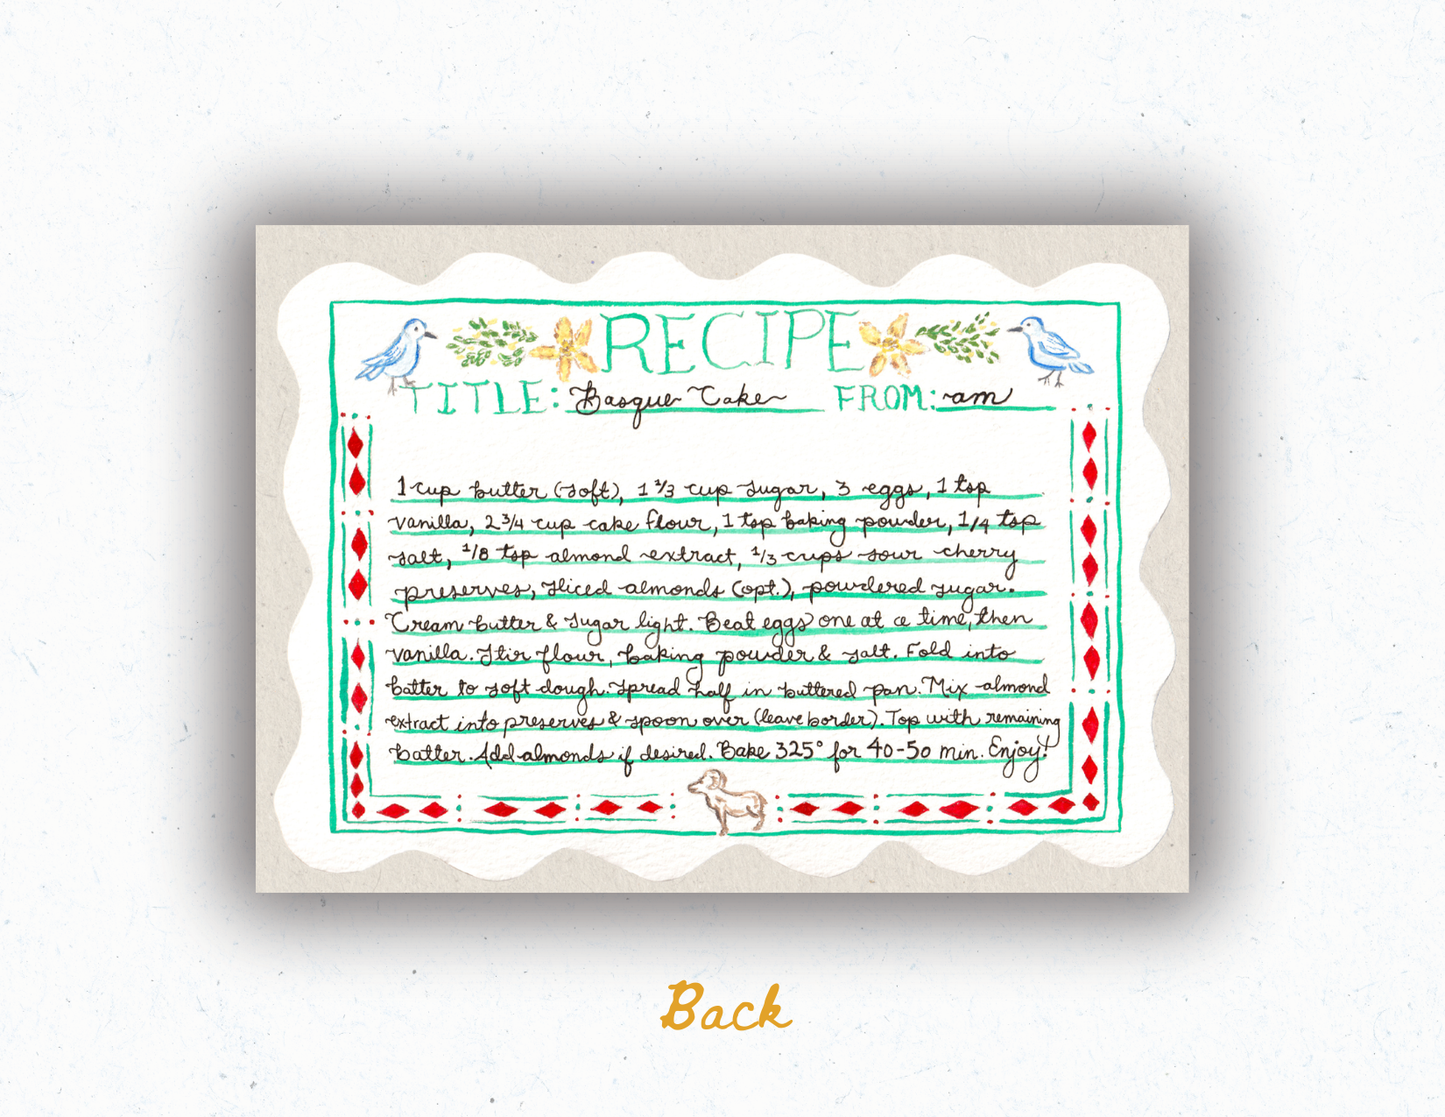 RECIPE
TITLE: Basque Cake FROM: am
1 cup butter (soft), 1 2/3 cup sugar, 3 eggs, 1 tsp
vanilla, 2 3/4 cup cake flour, 1 tsp baking powder, 1/4 tsp
salt, 1/8 tsp almond extract, 1/3 cups sour cherry
preserves, sliced almonds (opt.), powdered sugar.
Cream butter & sugar light. Beat eggs one at a time, then
vanilla. Stir flour, baking powder & salt. Fold into
batter to soft dough. Spread half in buttered pan. Mix almond
extract into preserves & spoon over (leave border). Top with remaining
batter. Add almonds if desired. Bake 325° for 40-50 min. Enjoy!
Back